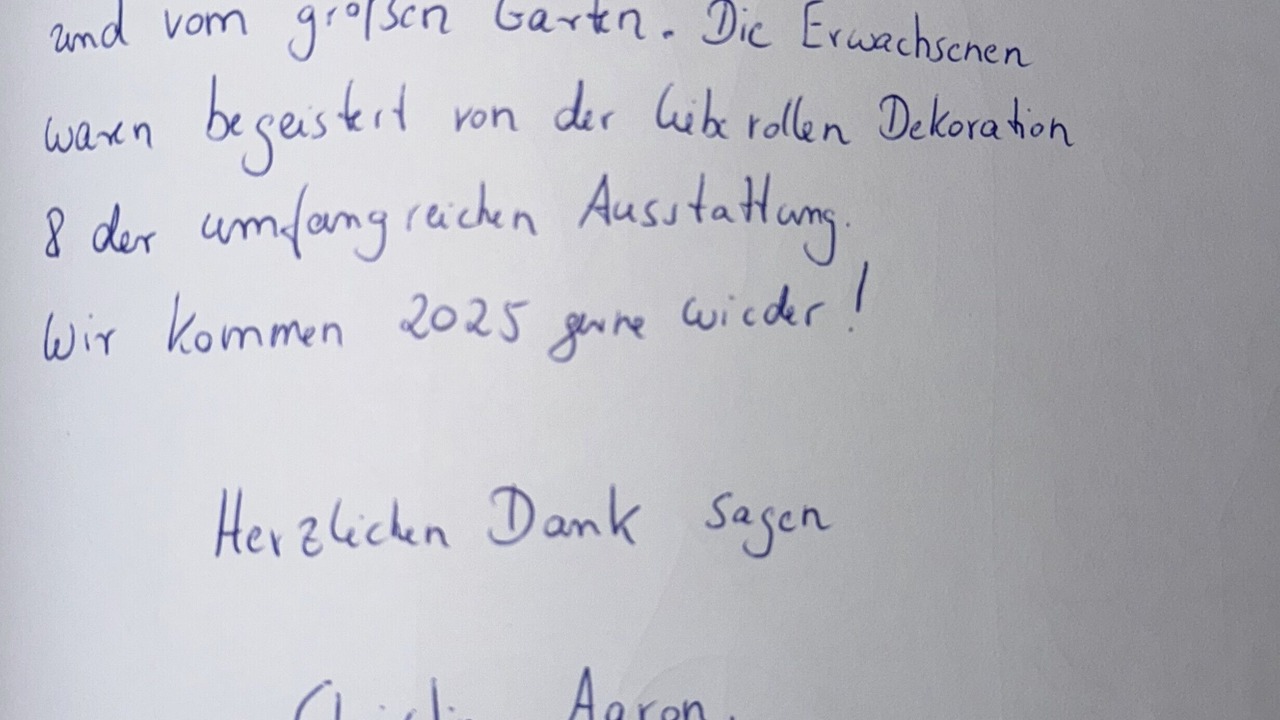 und vom großen Garten. Die Erwachsenen
waren begeistert von der liebevollen Dekoration
& der umfangreichen Ausstattung.
Wir kommen 2025 gerne wieder!
Herzlichen Dank sagen
Aaron,